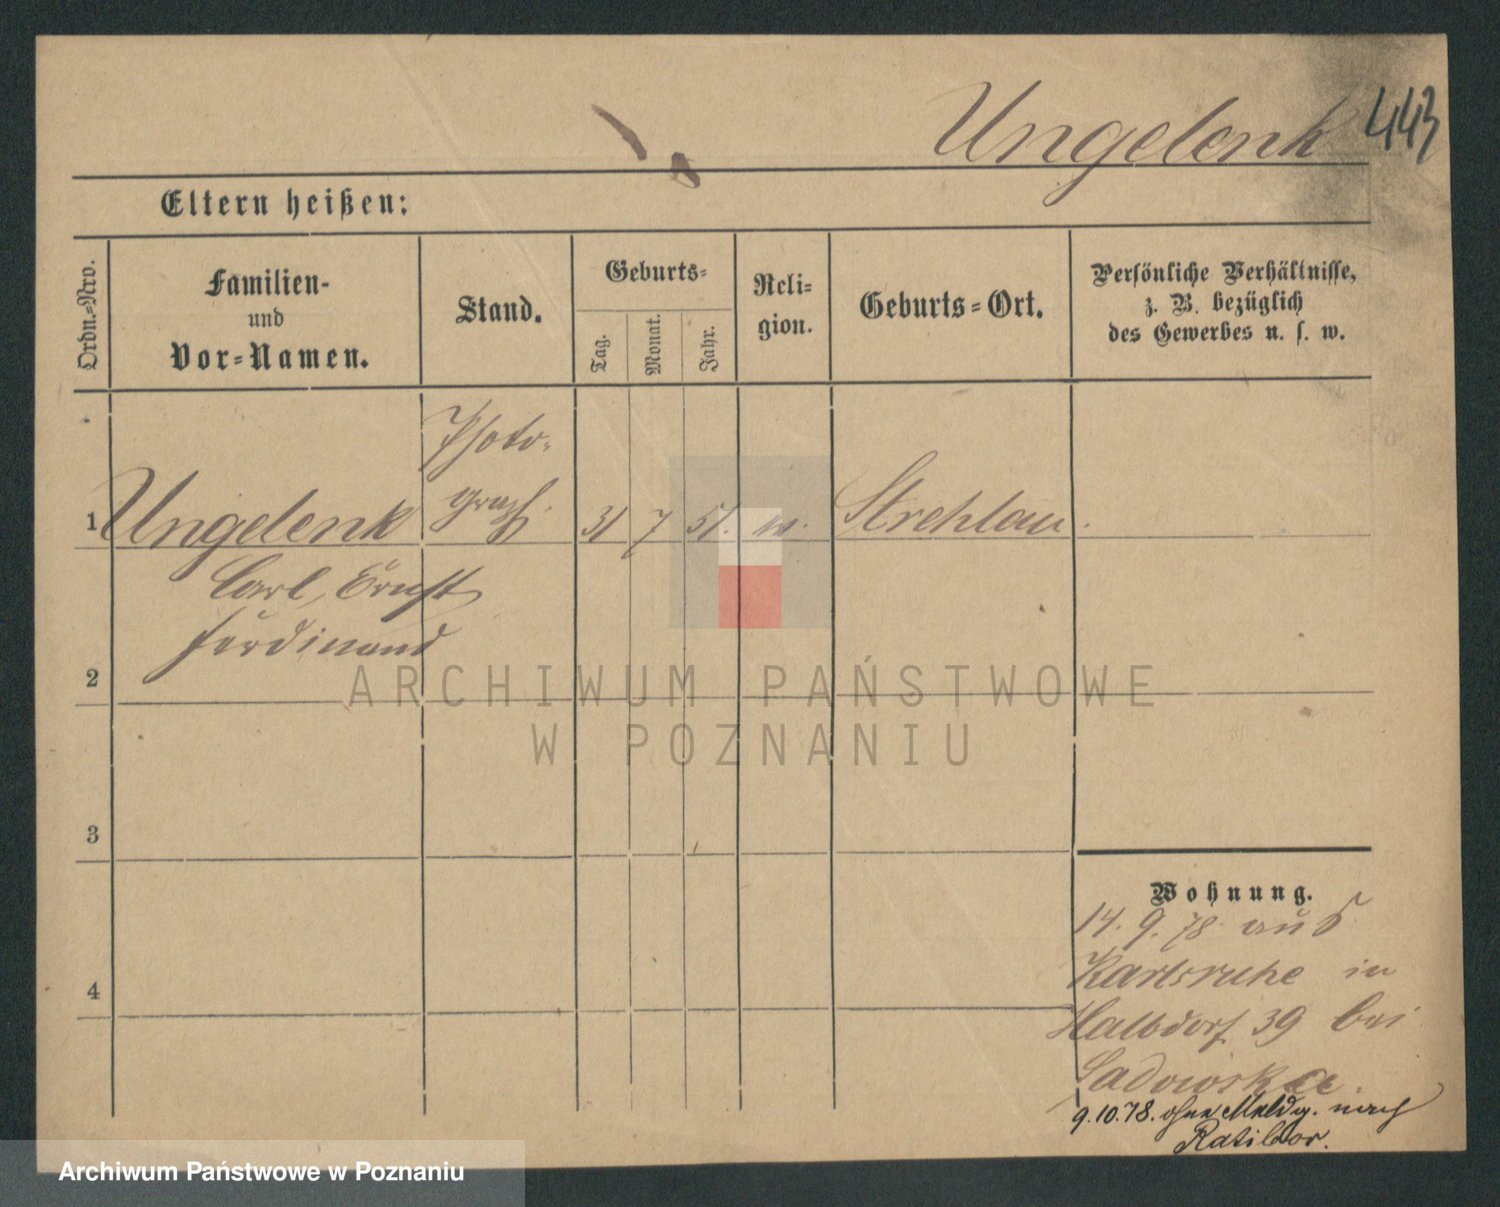 Ungelenk 443
Eltern heißen:
Ordn.-Nro.
Familien-
und
Vor-Namen.
Stand.
Geburts-
Tag.
Monat.
Jahr.
Reli-
gion.
Geburts-Ort.
Persönliche Verhältnisse,
z. B. bezüglich
des Gewerbes u. s. w.
Photo-
graph.
1 Ungelenk 31 7 51. Strehlau.
Carl, Ernst
Ferdinand
2
ARCHIWUM PAŃSTWOWE
W POZNANIU
3
Wohnung.
14. 9. 78. aus
Karlsruhe in
4
Halbdorf 39 bei
Sadowska.
9.10.78. ohne Meldg. nach
Ratibor.
Archiwum Państwowe w Poznaniu